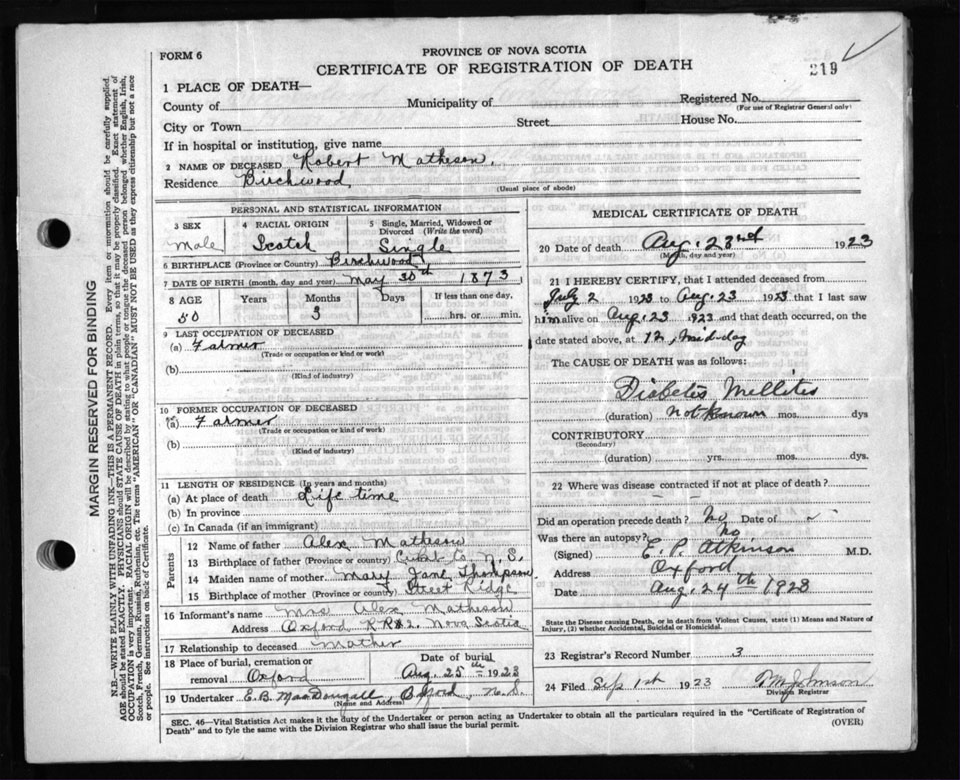 FORM 6
PROVINCE OF NOVA SCOTIA
CERTIFICATE OF REGISTRATION OF DEATH
219
1 PLACE OF DEATH—
County of
Municipality of
Registered No.
(For use of Registrar General only)
City or Town
Street
House No.
If in hospital or institution, give name
2 NAME OF DECEASED Robert Matheson.
Residence Birchwood
(Usual place of abode)
PERSONAL AND STATISTICAL INFORMATION
3 SEX
Male
4 RACIAL ORIGIN
Scotch
5 Single, Married, Widowed or Divorced (Write the word)
Single
6 BIRTHPLACE (Province or Country) Birchwood
7 DATE OF BIRTH (month, day and year) May 30th 1873
8 AGE Years Months Days If less than one day,
50 3 hrs. or min.
9 LAST OCCUPATION OF DECEASED
(a) Farmer
(Trade or occupation or kind or work)
(b)
(Kind of industry)
10 FORMER OCCUPATION OF DECEASED
(a) Farmer
(Trade or occupation or kind or work)
(b)
(Kind of industry)
11 LENGTH OF RESIDENCE (In years and months)
(a) At place of death Life time
(b) In province
(c) In Canada (if an immigrant)
Parents
12 Name of father Alex Matheson
13 Birthplace of father (Province or country) N.S.
14 Maiden name of mother Mary Jane Thompson
15 Birthplace of mother (Province or country) Street Ridge
16 Informant's name Mrs Alex Matheson
Address Oxford RR#2 Nova Scotia
17 Relationship to deceased Mother
18 Place of burial, cremation or removal Oxford
Date of burial
Aug. 25th 1923
19 Undertaker E.B. MacDougall, Oxford, N.S.
(Name and Address)
MEDICAL CERTIFICATE OF DEATH
20 Date of death Aug. 23rd 1923
(Month, day and year)
21 I HEREBY CERTIFY, that I attended deceased from
July 2 1923 to Aug. 23 1923 that I last saw
him alive on Aug. 23 1923 and that death occurred, on the
date stated above, at 12, mid-day
The CAUSE OF DEATH was as follows:
Diabetes Mellites
(duration) not known mos. dys
CONTRIBUTORY
(Secondary)
(duration) yrs. mos. dys.
22 Where was disease contracted if not at place of death?
— —
Did an operation precede death? No Date of
Was there an autopsy? No
(Signed) E. P. Atkinson M.D.
Address Oxford
Date Aug. 24th 1923
State the Disease causing Death, or in death from Violent Causes, state (1) Means and Nature of Injury, (2) whether Accidental, Suicidal or Homicidal.
23 Registrar's Record Number 3
24 Filed Sep 1st 1923 Johnson
Division Registrar
SEC. 46—Vital Statistics Act makes it the duty of the Undertaker or person acting as Undertaker to obtain all the particulars required in the "Certificate of Registration of
Death" and to fyle the same with the Division Registrar who shall issue the burial permit.
(OVER)
MARGIN RESERVED FOR BINDING
N.B.—WRITE PLAINLY WITH UNFADING INK—THIS IS A PERMANENT RECORD. Every item or information should be carefully supplied.
AGE should be stated EXACTLY. PHYSICIANS should STATE CAUSE OF DEATH in plain terms, so that it may be properly classified. Exact statement of
OCCUPATION is very important. RACIAL ORIGIN will be described by stating to what people or tongue the deceased person belonged whether English, Irish,
Scotch, French, German, Russian, Ruthenian, etc. The terms "AMERICAN" OR "CANADIAN" MUST NOT BE USED as they express citizenship but not a race
or people. See instructions on back of Certificate.